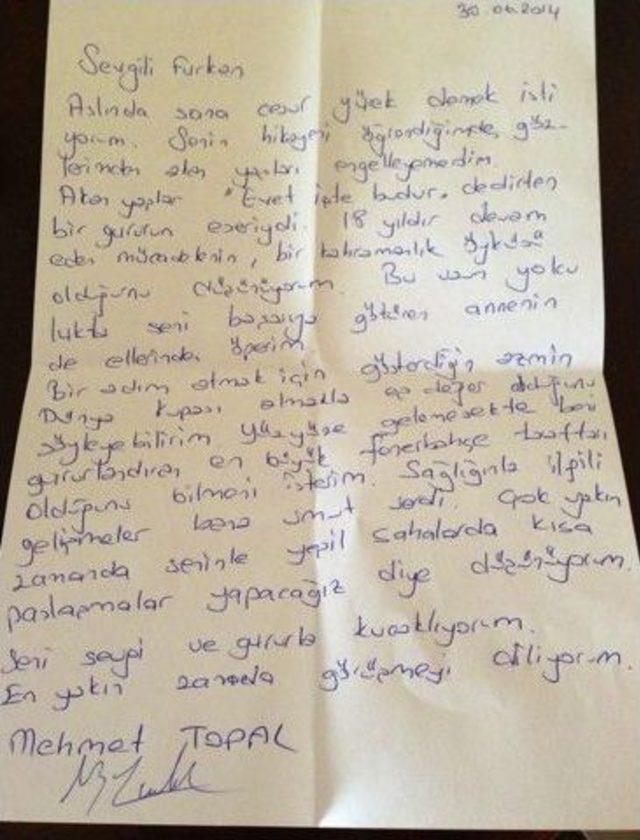 30.06.2014
Sevgili Furkan
Aslında sana cesur yürek demek isti
yorum. Senin hikayeni öğrendiğimde, göz-
lerimden akan yaşları engelleyemedim.
Akan yaşlar "Evet işte budur, dedirten
bir gururun eseriydi. 18 yıldır devam
eden mücadelenin, bir kahramanlık öyküsü
olduğunu düşünüyorum. Bu uzun yolcu
lukta seni başarıya götüren annenin
de ellerinden öperim
Bir adım atmak için gösterdiğin azmin
Dünya kupası almakla eş değer olduğunu
söyleyebilirim yüzyüze gelemesekte beni
gururlandıran en büyük fenerbahçe taraftarı
olduğunu bilmeni isterim. Sağlığınla ilgili
gelişmeler bana umut verdi. Çok yakın
zamanda seninle yeşil sahalarda kısa
paslaşmalar yapacağız diye düşünüyorum.
Seni sevgi ve gururla kucaklıyorum.
En yakın zamanda görüşmeyi diliyorum.
Mehmet TOPAL